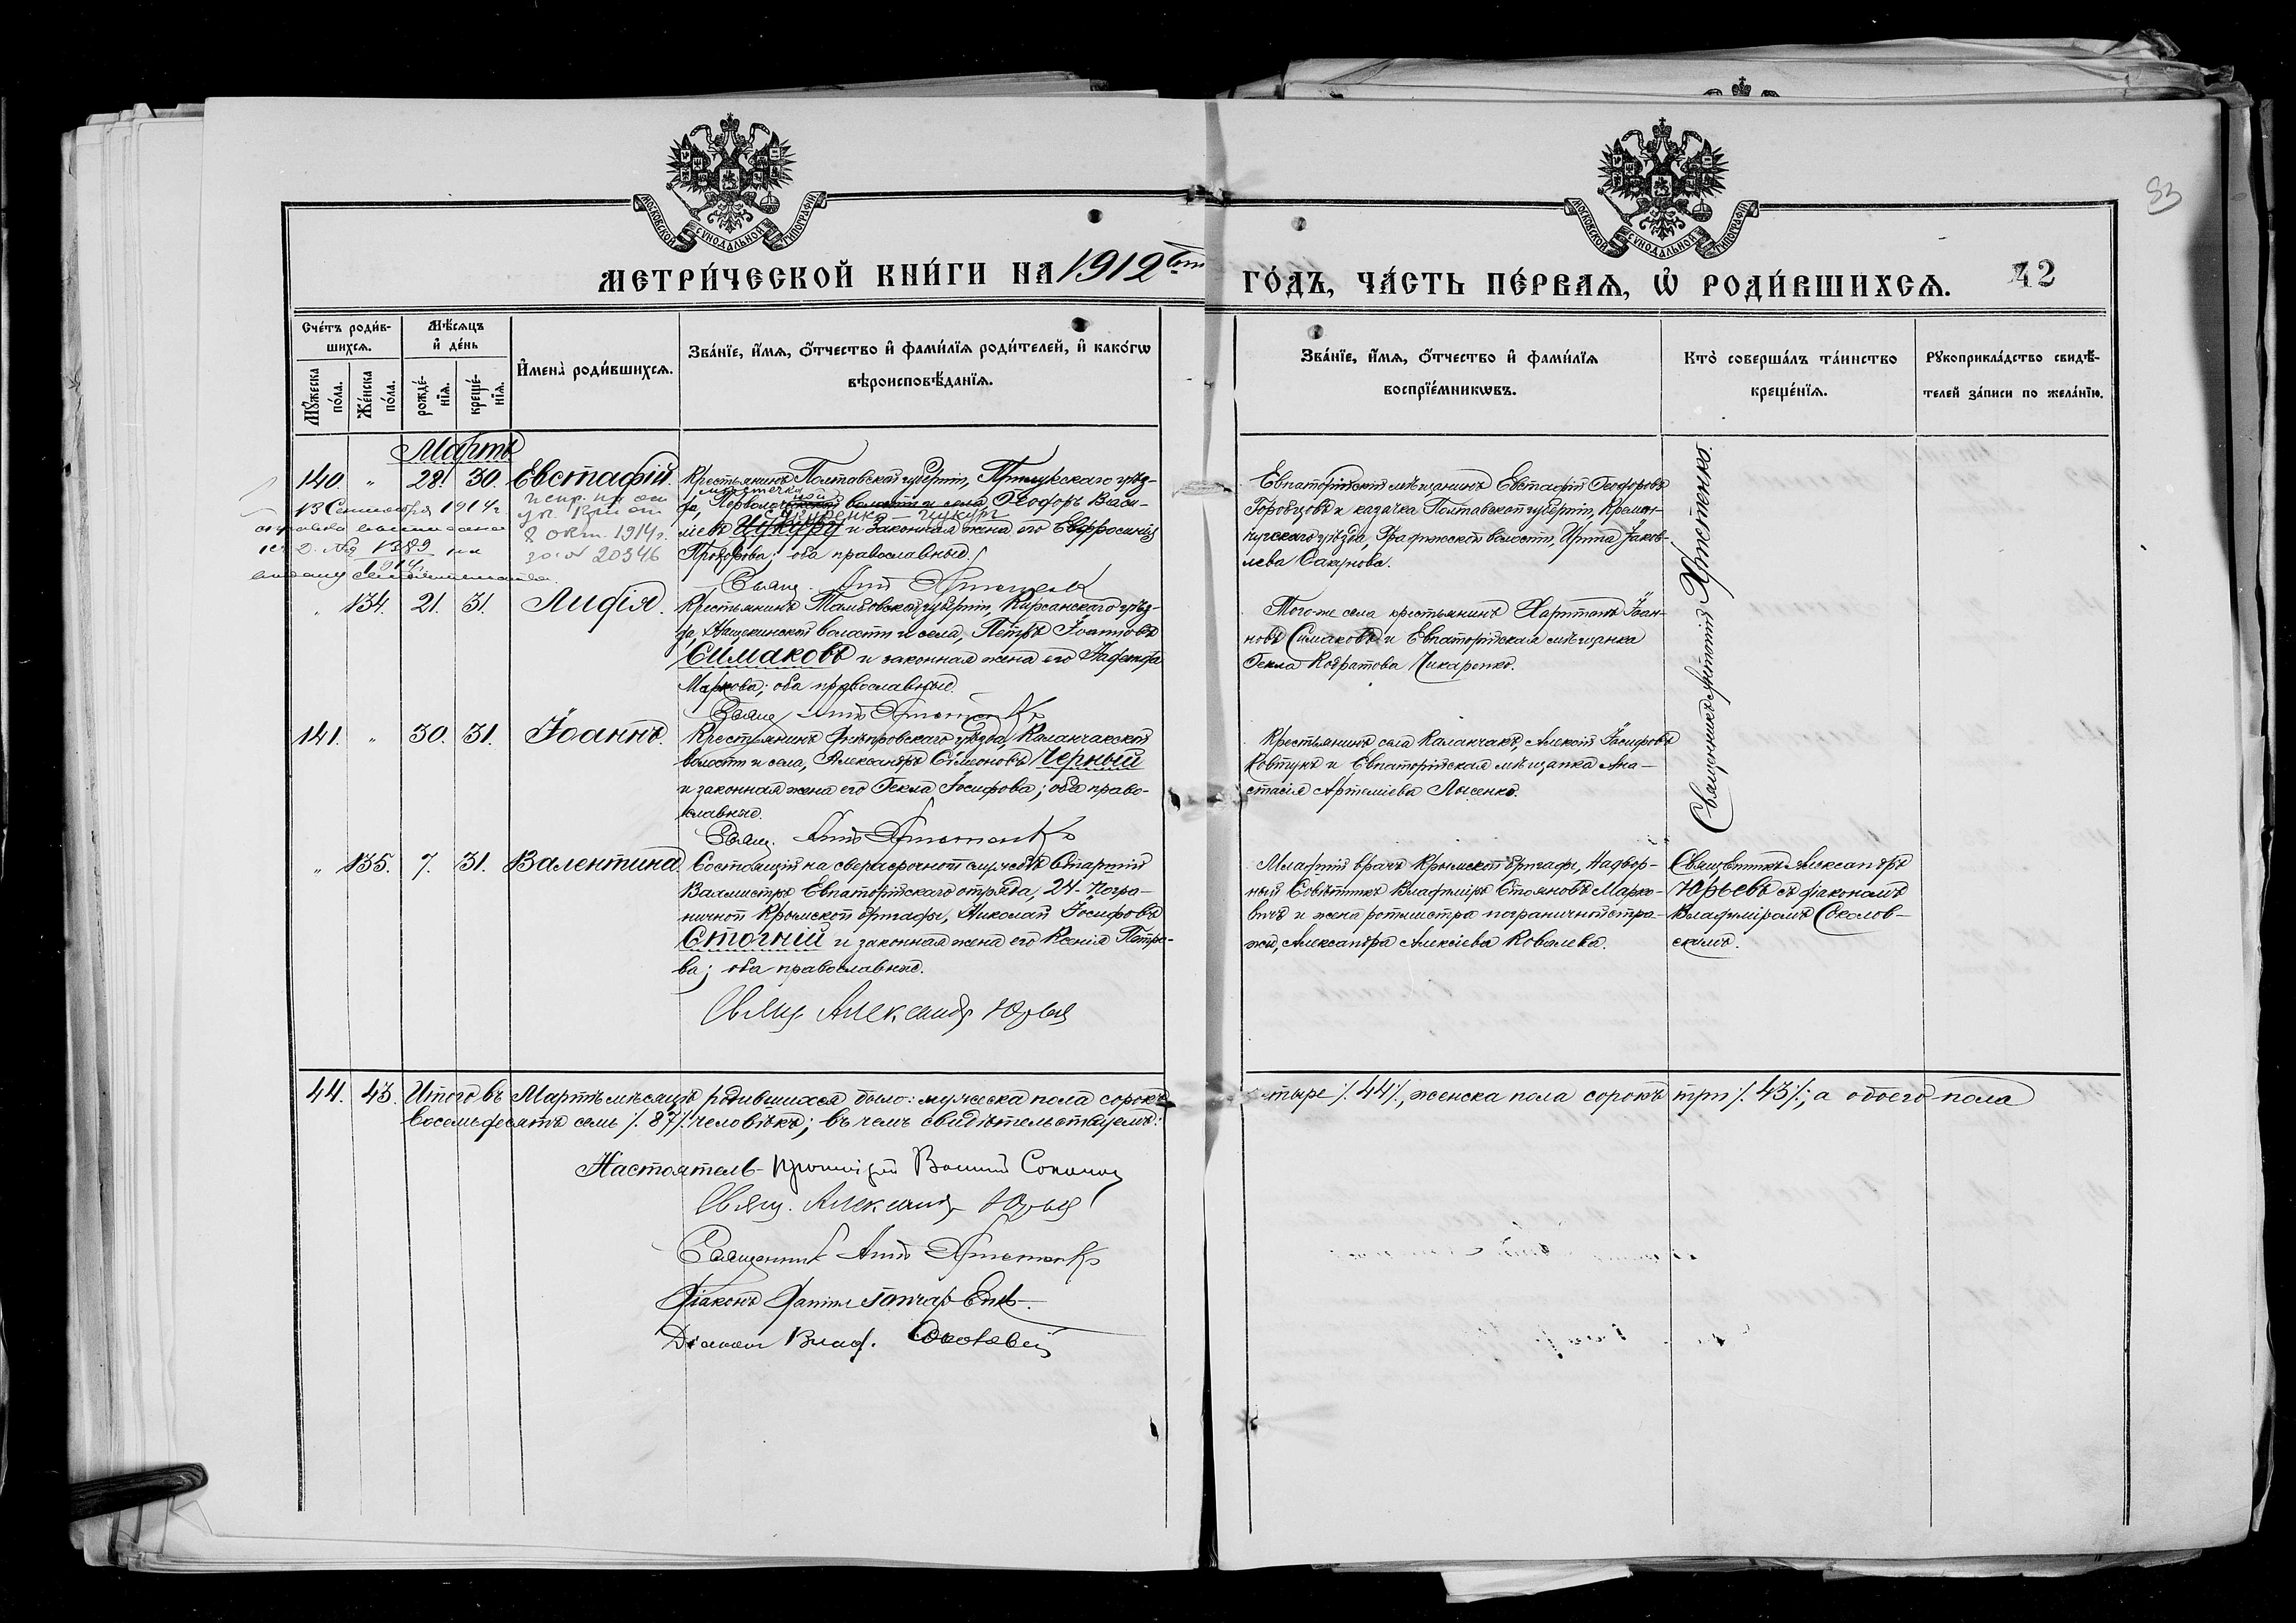 83
МОСКОВСКОЙ СУНОДАЛЬНОЙ ТИПОГРАФІИ
МОСКОВСКОЙ СУНОДАЛЬНОЙ ТИПОГРАФІИ
МЕТРИ́ЧЕСКОЙ КНИ́ГИ НА 1912
ГО́ДЪ, ЧА́СТЬ ПЕ́РВАѦ, Ѡ҆ РОДИ́ВШИХСѦ. 42
Сче́тъ роди́в-
шихсѧ.
Мꙋ́жеска по́ла.
Же́нска по́ла.
Мѣ́сѧцъ
и҆ де́нь
рожде́-
нїѧ.
креще́-
нїѧ.
И҆мена̀ роди́вшихсѧ.
Зва́нїе, и҆́мѧ, ѻ҆́тчество и҆ фами́лїѧ роди́телей, и҆ како́гѡ
вѣроисповѣ́данїѧ.
Зва́нїе, и҆́мѧ, ѻ҆́тчество и҆ фами́лїѧ
воспрїе́мникѡвъ.
Кто̀ соверша́лъ та́инство
креще́нїѧ.
Рꙋкоприкла́дство свидѣ́-
телей за́писи по жела́нїю.
Мартъ
140. " 28. 30. Евстафій.
Крестьянинъ Полтавской губерніи, Прилукскаго уѣз-
мѣстечка
да, волости и села Ѳеодоръ Васи-
ліевъ Цукуръ и законная жена его Евфросинія
Прохорова; оба православные.
13 Сентября 1914 г.
№ 1389
1914 г.
8 окт. 1914 г.
за № 20346
Евпаторійскій мѣщанинъ Евстафій Ѳеодоровъ
Горобцовъ и казачка Полтавской губерніи, Кремен-
чугскаго уѣзда, волости, Ирина Іаков-
лева Сакунова.
Священникъ Антоній Христенко.
" 134. 21. 31. Лидія.
Крестьянинъ Тамбовской губерніи, Кирсанскаго уѣз-
да, Нащекинской волости и села, Петръ Іоанновъ
Симаковъ и законная жена его Надежда
Маркова; оба православные.
Того-же села крестьянинъ Харитонъ Іоан-
новъ Симаковъ и Евпаторійская мѣщанка
Ѳекла Кодратова Чикаренко.
141. " 30. 31. Іоаннъ.
Крестьянинъ Днѣпровскаго уѣзда, Каланчакской
волости и села, Александръ Симеоновъ Черный
и законная жена его Ѳекла Іосифова; оба право-
славные.
Крестьянинъ села Каланчакъ, Алексій Іосифовъ
Ковтунъ и Евпаторійская мѣщанка Ана-
стасія Артеміева Лысенко.
" 135. 7. 31. Валентина.
Состоящій на сверхсрочной службѣ Старшій
Вахмистръ Евпаторійскаго отряда, 24-Погра-
ничной Крымской бригады, Николай Іосифовъ
Стогній и законная жена его Ксенія Петро-
ва; оба православные.
Свящ. Александр Юрьев
Младшій врачъ Крымской бригады, Надвор-
ный Совѣтникъ Владиміръ Стояновъ Марко-
вичъ и жена ротмистра пограничной стра-
жи, Александра Алексіева Ковалева.
Священникъ Александръ
Юрьевъ съ діакономъ
Владиміромъ Соколов-
скимъ.
44. 43. Итого въ Мартѣ мѣсяцѣ родившихся было: мужеска пола сорокъ
тыре /. 44 /., женска пола сорокъ три /. 43 /.; а обоего пола
восемьдесятъ семь /. 87 /. человѣкъ; въ чемъ свидѣтельствуемъ:
Настоятель-
Свящ. Александр Юрьев
Священник Антоній Христенко
Діаконъ
Діакон Влад. Соколовскій